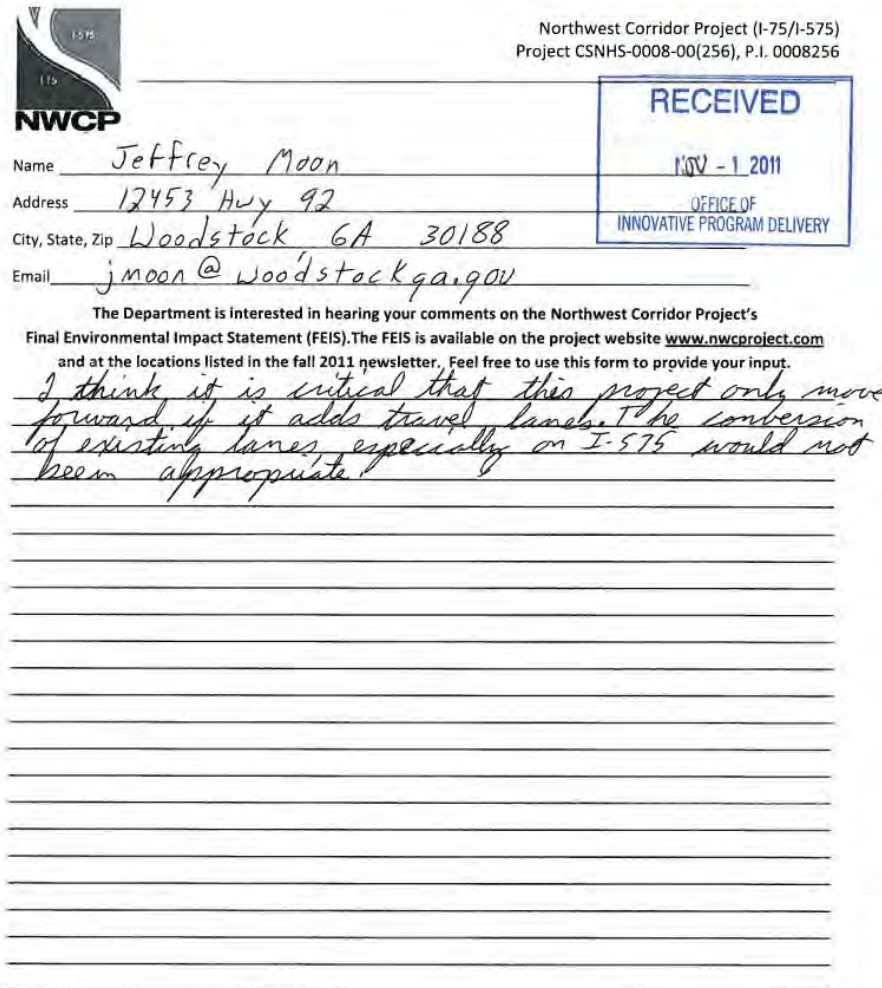 I-575
I-75
NWCP
Northwest Corridor Project (I-75/I-575)
Project CSNHS-0008-00(256), P.I. 0008256
RECEIVED
NOV - 1 2011
OFFICE OF
INNOVATIVE PROGRAM DELIVERY
Name Jeffrey Moon
Address 12453 Hwy 92
City, State, Zip Woodstock, GA 30188
Email jmoon@woodstockga.gov
The Department is interested in hearing your comments on the Northwest Corridor Project's
Final Environmental Impact Statement (FEIS).The FEIS is available on the project website www.nwcproject.com
and at the locations listed in the fall 2011 newsletter. Feel free to use this form to provide your input.
I think it is critical that this project only move
forward if it adds travel lanes. The conversion
of existing lanes, especially on I-575 would not
seem appropriate.